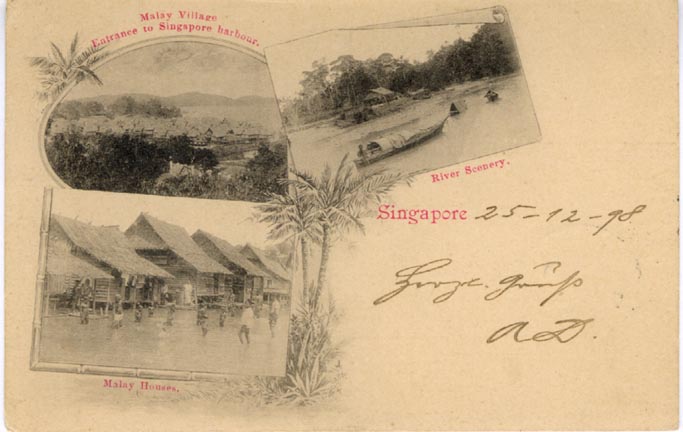 Malay Village
Entrance to Singapore harbour.
River Scenery.
Singapore 25-12-98
Herzl. Gruß
AD.
Malay Houses.